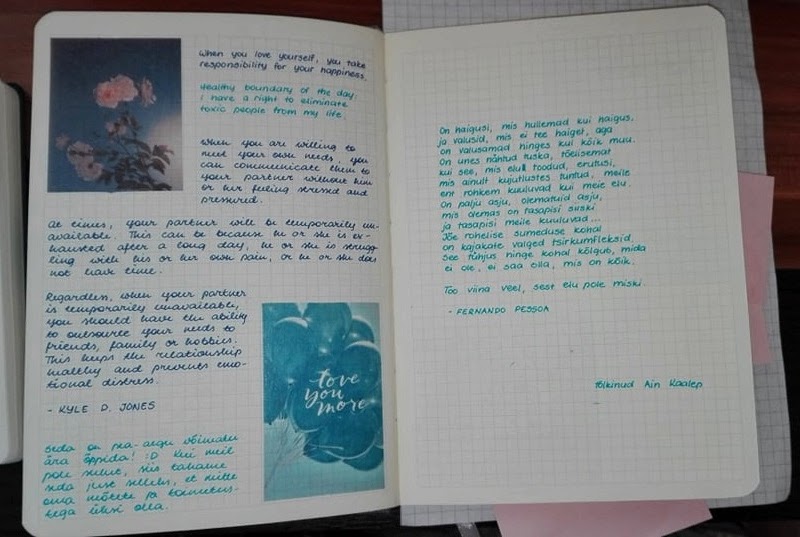 When you love yourself, you take
responsibility for your happiness.
Healthy boundary of the day:
I have a right to eliminate
toxic people from my life.
When you are willing to
meet your own needs, you
can communicate them to
your partner without him
or her feeling stressed and
pressured.
At times, your partner will be temporarily un-
available. This can be because he or she is ex-
hausted after a long day, he or she is strugg-
ling with his or her own pain, or he or she does
not have time.
Regardless, when your partner
is temporarily unavailable,
you should have the ability
to outsource your needs to
friends, family or hobbies.
This keeps the relationship
healthy and prevents emo-
tional distress.
- KYLE D. JONES
love
you
more
Seda on pea-aegu võimatu
ära õppida! :D Kui meil
pole suhet, siis tahame
seda just selleks, et mitte
oma mõtete ja toimetus-
tega üksi olla.
On haigusi, mis hullemad kui haigus,
ja valusid, mis ei tee haiget, aga
on valusamad hinges kui kõik muu.
On unes nähtud tuska, tõelisemat
kui see, mis elult toodud, erutusi,
mis ainult kujutlustes tuntud, meile
ent rohkem kuuluvad kui meie elu.
On palju asju, olematuid asju,
mis olemas on tasapisi siiski
ja tasapisi meile kuuluvad...
Jõe rohelise sumeduse kohal
on kajakate valged tsirkumfleksid,
see tühjus hinge kohal kõlgub, mida
ei ole, ei saa olla, mis on kõik.
Too viina veel, sest elu pole miski.
- FERNANDO PESSOA
tõlkinud Ain Kaalep